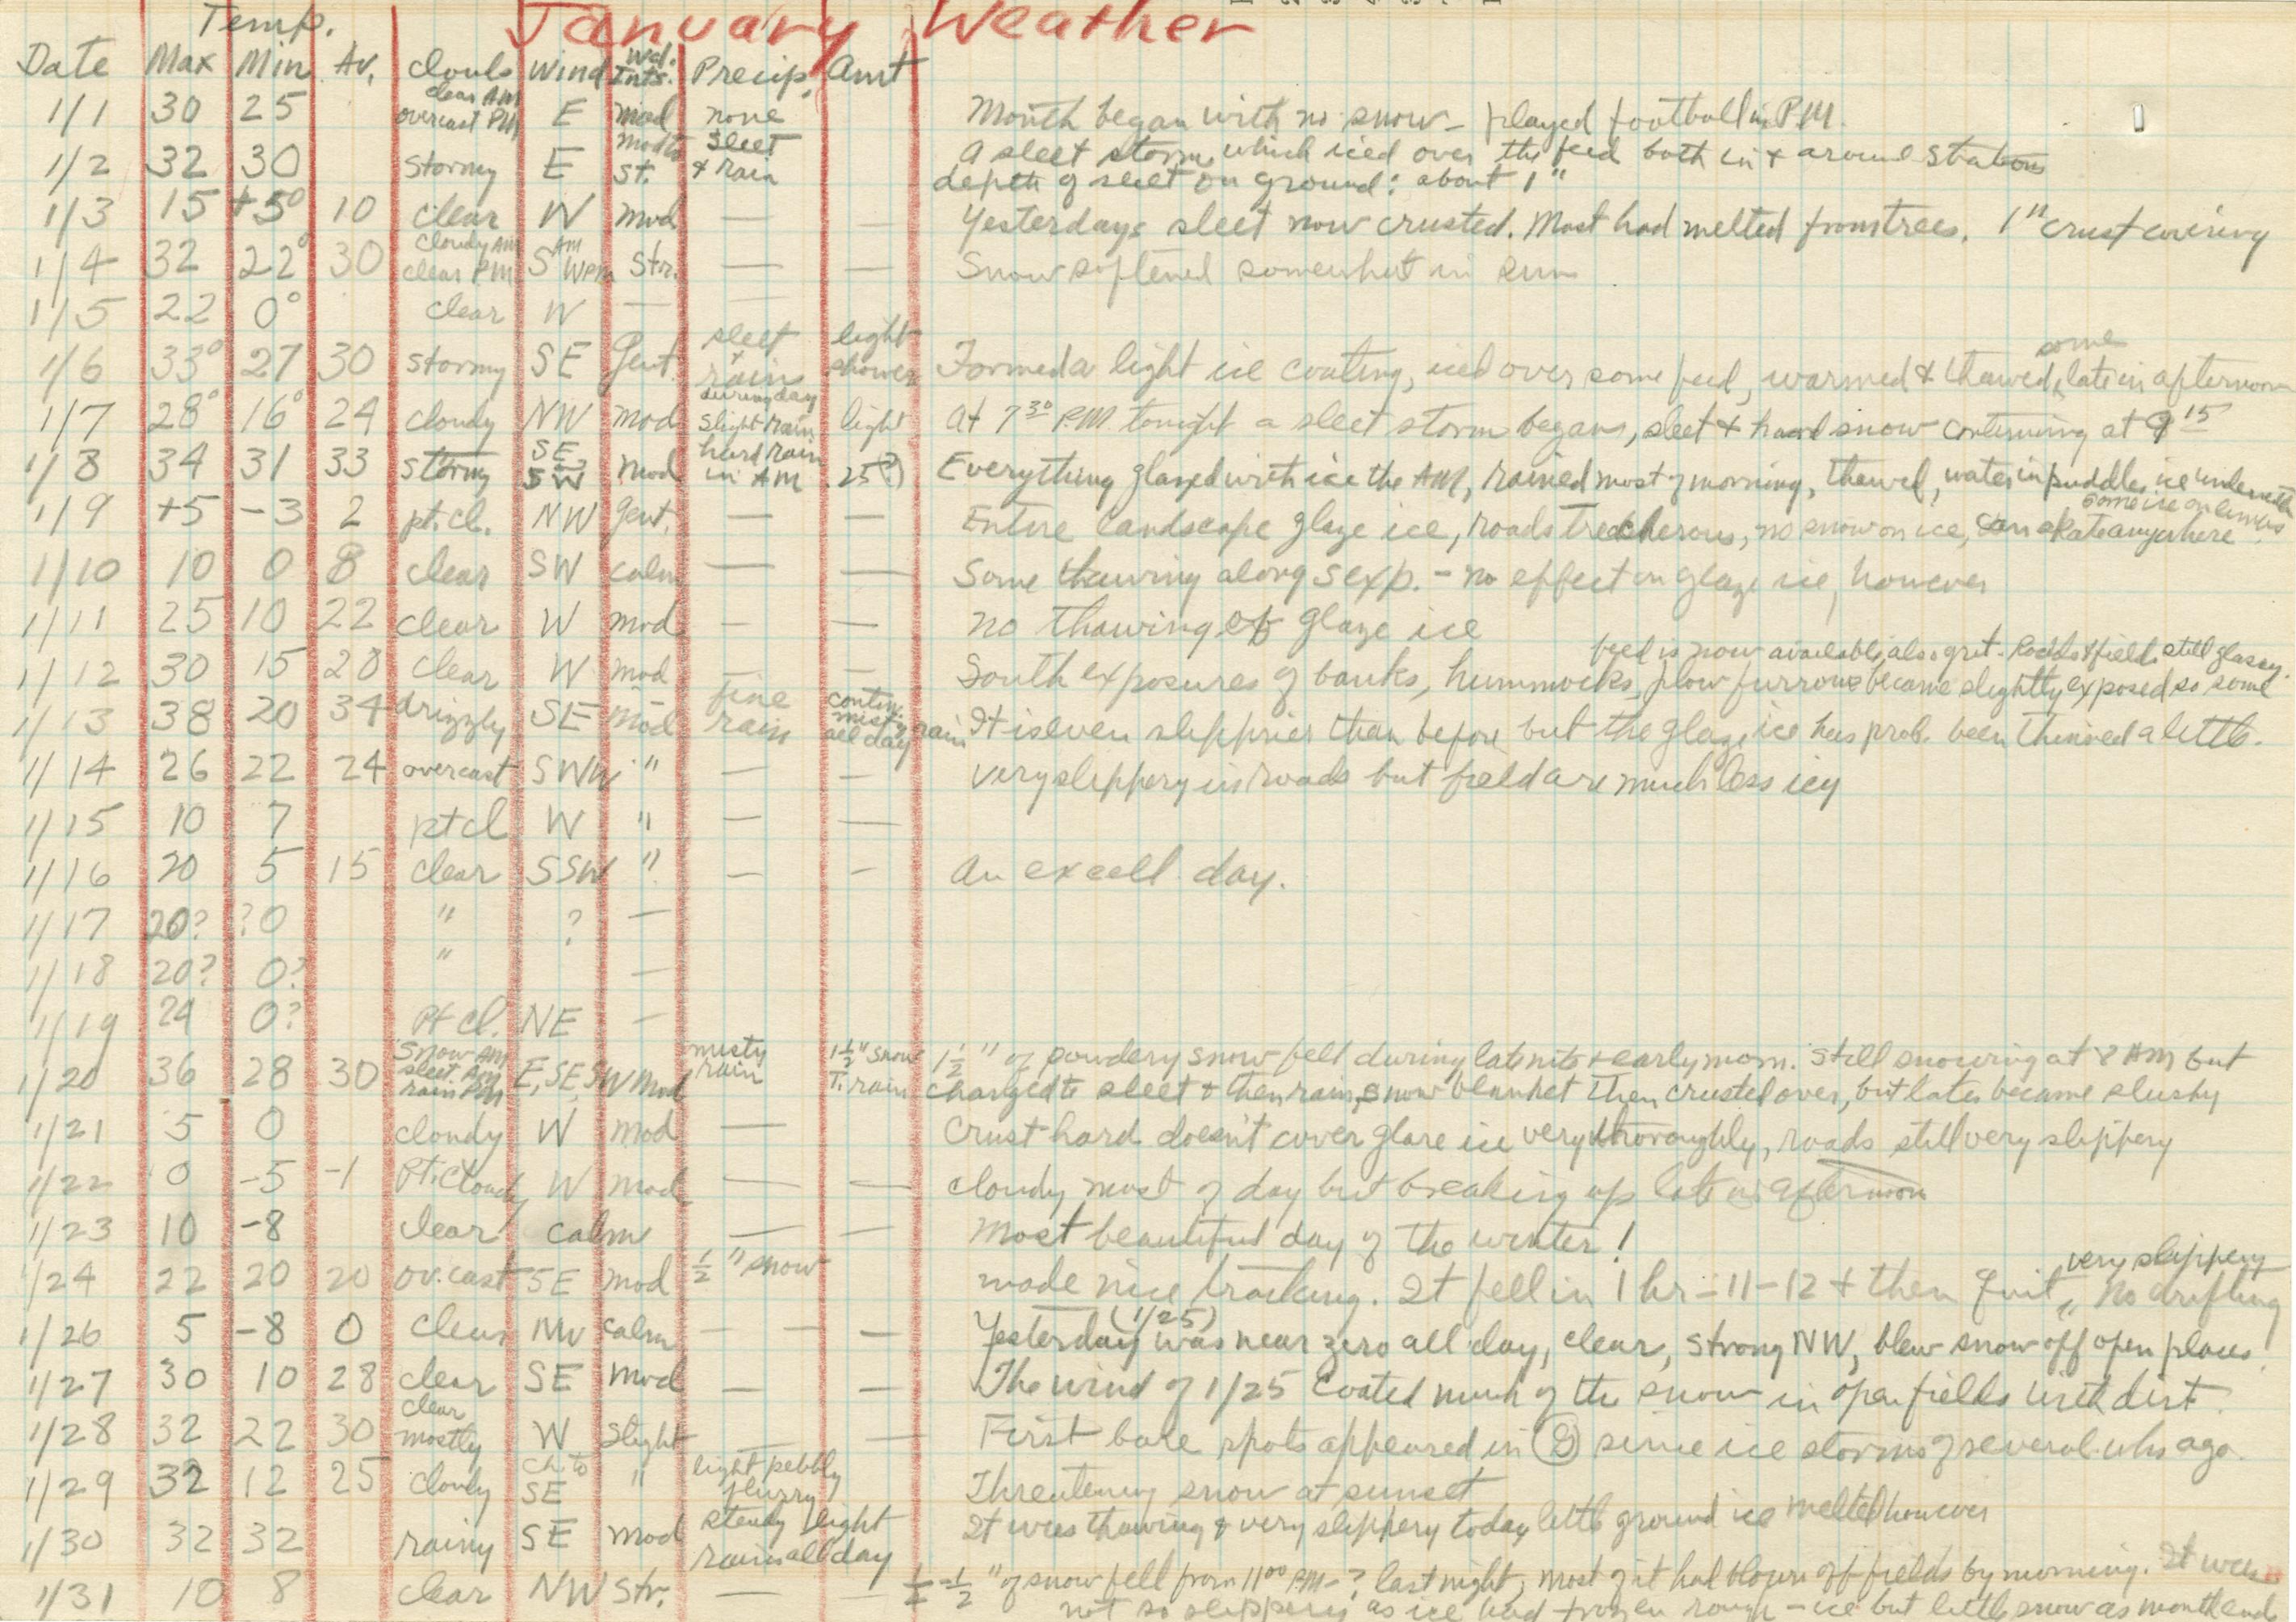 January Weather
Temp.
Date Max Min Av. Clouds Wind Wd. Ints. Precip. Amt
1/1 30 25 clear AM overcast PM E mod none Month began with no snow - played football in P.M.
1/2 32 30 stormy E mod to st. sleet & rain A sleet storm which iced over the feed both in & around stations
depth of sleet on ground: about 1"
1/3 15 +5° 10 clear W mod — — Yesterdays sleet now crusted. Most had melted from trees. 1" crust covering
1/4 32 22° 30 cloudy AM clear PM S AM W PM Str. — — Snow softened somewhat in sun
1/5 22 0° clear W — —
1/6 33° 27 30 stormy SE Gent. sleet & rain light shower Formed a light ice coating, iced over some feed, warmed & thawed some late in afternoon
1/7 28° 16° 24 cloudy NW mod during day slight rain light At 7 30 P.M. tonight a sleet storm began, sleet & hard snow continuing at 9 15
1/8 34 31 33 stormy SE, SW mod hard rain in AM .25(?) Everything glazed with ice the AM, rained most of morning, thawed, water in puddles, ice underneath
1/9 +5 -3 2 pt. cl. NW Gent. — — Entire landscape glaze ice, roads treacherous, no snow on ice, can skate anywhere some ice on limbs
1/10 10 0 8 clear SW calm — — Some thawing along S exp. - no effect on glaze ice, however
1/11 25 10 22 clear W mod — — no thawing of glaze ice
1/12 30 15 28 clear W mod — — South exposures of banks, hummocks, plow furrows became slightly exposed so some
feed is now available, also grit. Roads & fields still glassy.
1/13 38 20 34 drizzly SE mod fine rain contin. misty rain all day It is even slipprier than before but the glaze ice has prob. been thinned a little.
1/14 26 22 24 overcast SWW " — — very slippery in roads but field are much less icy
1/15 10 7 pt cl W " — —
1/16 20 5 15 clear SSW " — - An excell. day.
1/17 20? ?0 " ? —
1/18 20? 0? " —
1/19 24 0? Pt cl. NE —
1/20 36 28 30 Snow AM sleet AM rain PM E, SE, SW mod misty rain 1 1/2" snow T. rain 1 1/2" of powdery snow fell during late nite & early morn. Still snowing at 8 AM but
changed to sleet & then rain, snow blanket then crusted over, but later became slushy
1/21 5 0 cloudy W mod — Crust hard doesn't cover glare ice very thoroughly, roads still very slippery
1/22 0 -5 -1 Pt. Cloudy W mod — — Cloudy most of day but breaking up late in afternoon
1/23 10 -8 clear calm — — Most beautiful day of the winter!
1/24 22 20 20 ov.cast SE mod 1/2" snow made nice tracking. It fell in 1 hr - 11-12 & then quit, very slippery No drifting
1/26 5 -8 0 clear NW calm — — — Yesterday (1/25) was near zero all day, clear, strong NW, blew snow off open places.
1/27 30 10 28 clear SE mod — — The wind of 1/25 coated much of the snow in open fields with dirt.
1/28 32 22 30 clear mostly W slight — — First bare spots appeared in since ice storms of several wks ago.
1/29 32 12 25 cloudy ch. to SE " light pebbly flurry Threatening snow at sunset
1/30 32 32 rainy SE mod steady light rain all day It was thawing & very slippery today little ground ice melted however
1/31 10 8 clear NW Str. — — "of snow fell from 11 00 PM - ? last night, most of it had blown off fields by morning. It was
not so slippery as ice had frozen rough - ice but little snow as month end